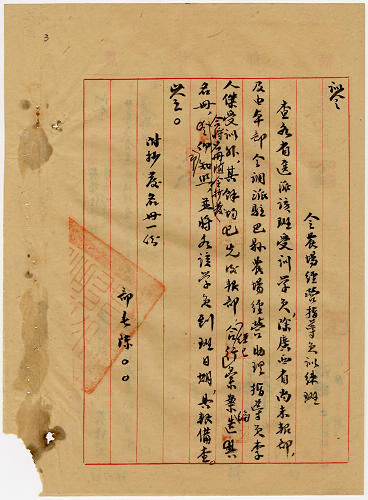 訓令
令農場經營指導員訓練班
查各省選派該班受訓學員除廣西省尚未報部，
及由本部令調派駐巴縣農場經營助理指導員李
人傑受訓外，其餘均已先後報部，合行彙案造具
名冊，令仰知照，並將各該學員到班日期，具報備查。
此令。
附抄發名冊一份
部長陳〇〇
3